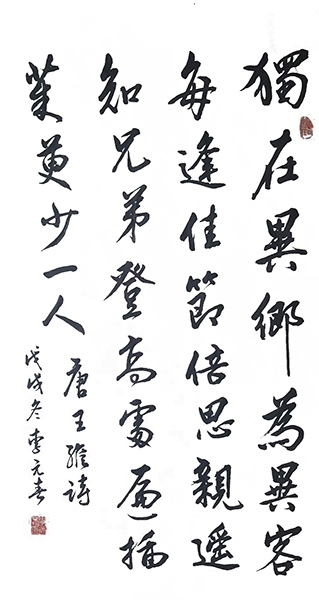 獨在異鄉為異客
每逢佳節倍思親遥
知兄弟登高處遍插
茱萸少一人
唐王維詩
戊戌冬李元春